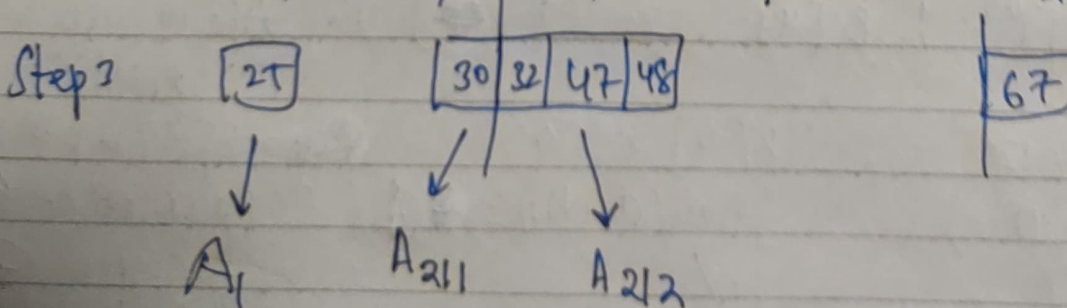 Step 3 25 30 32 47 48 67
A1 A211 A212